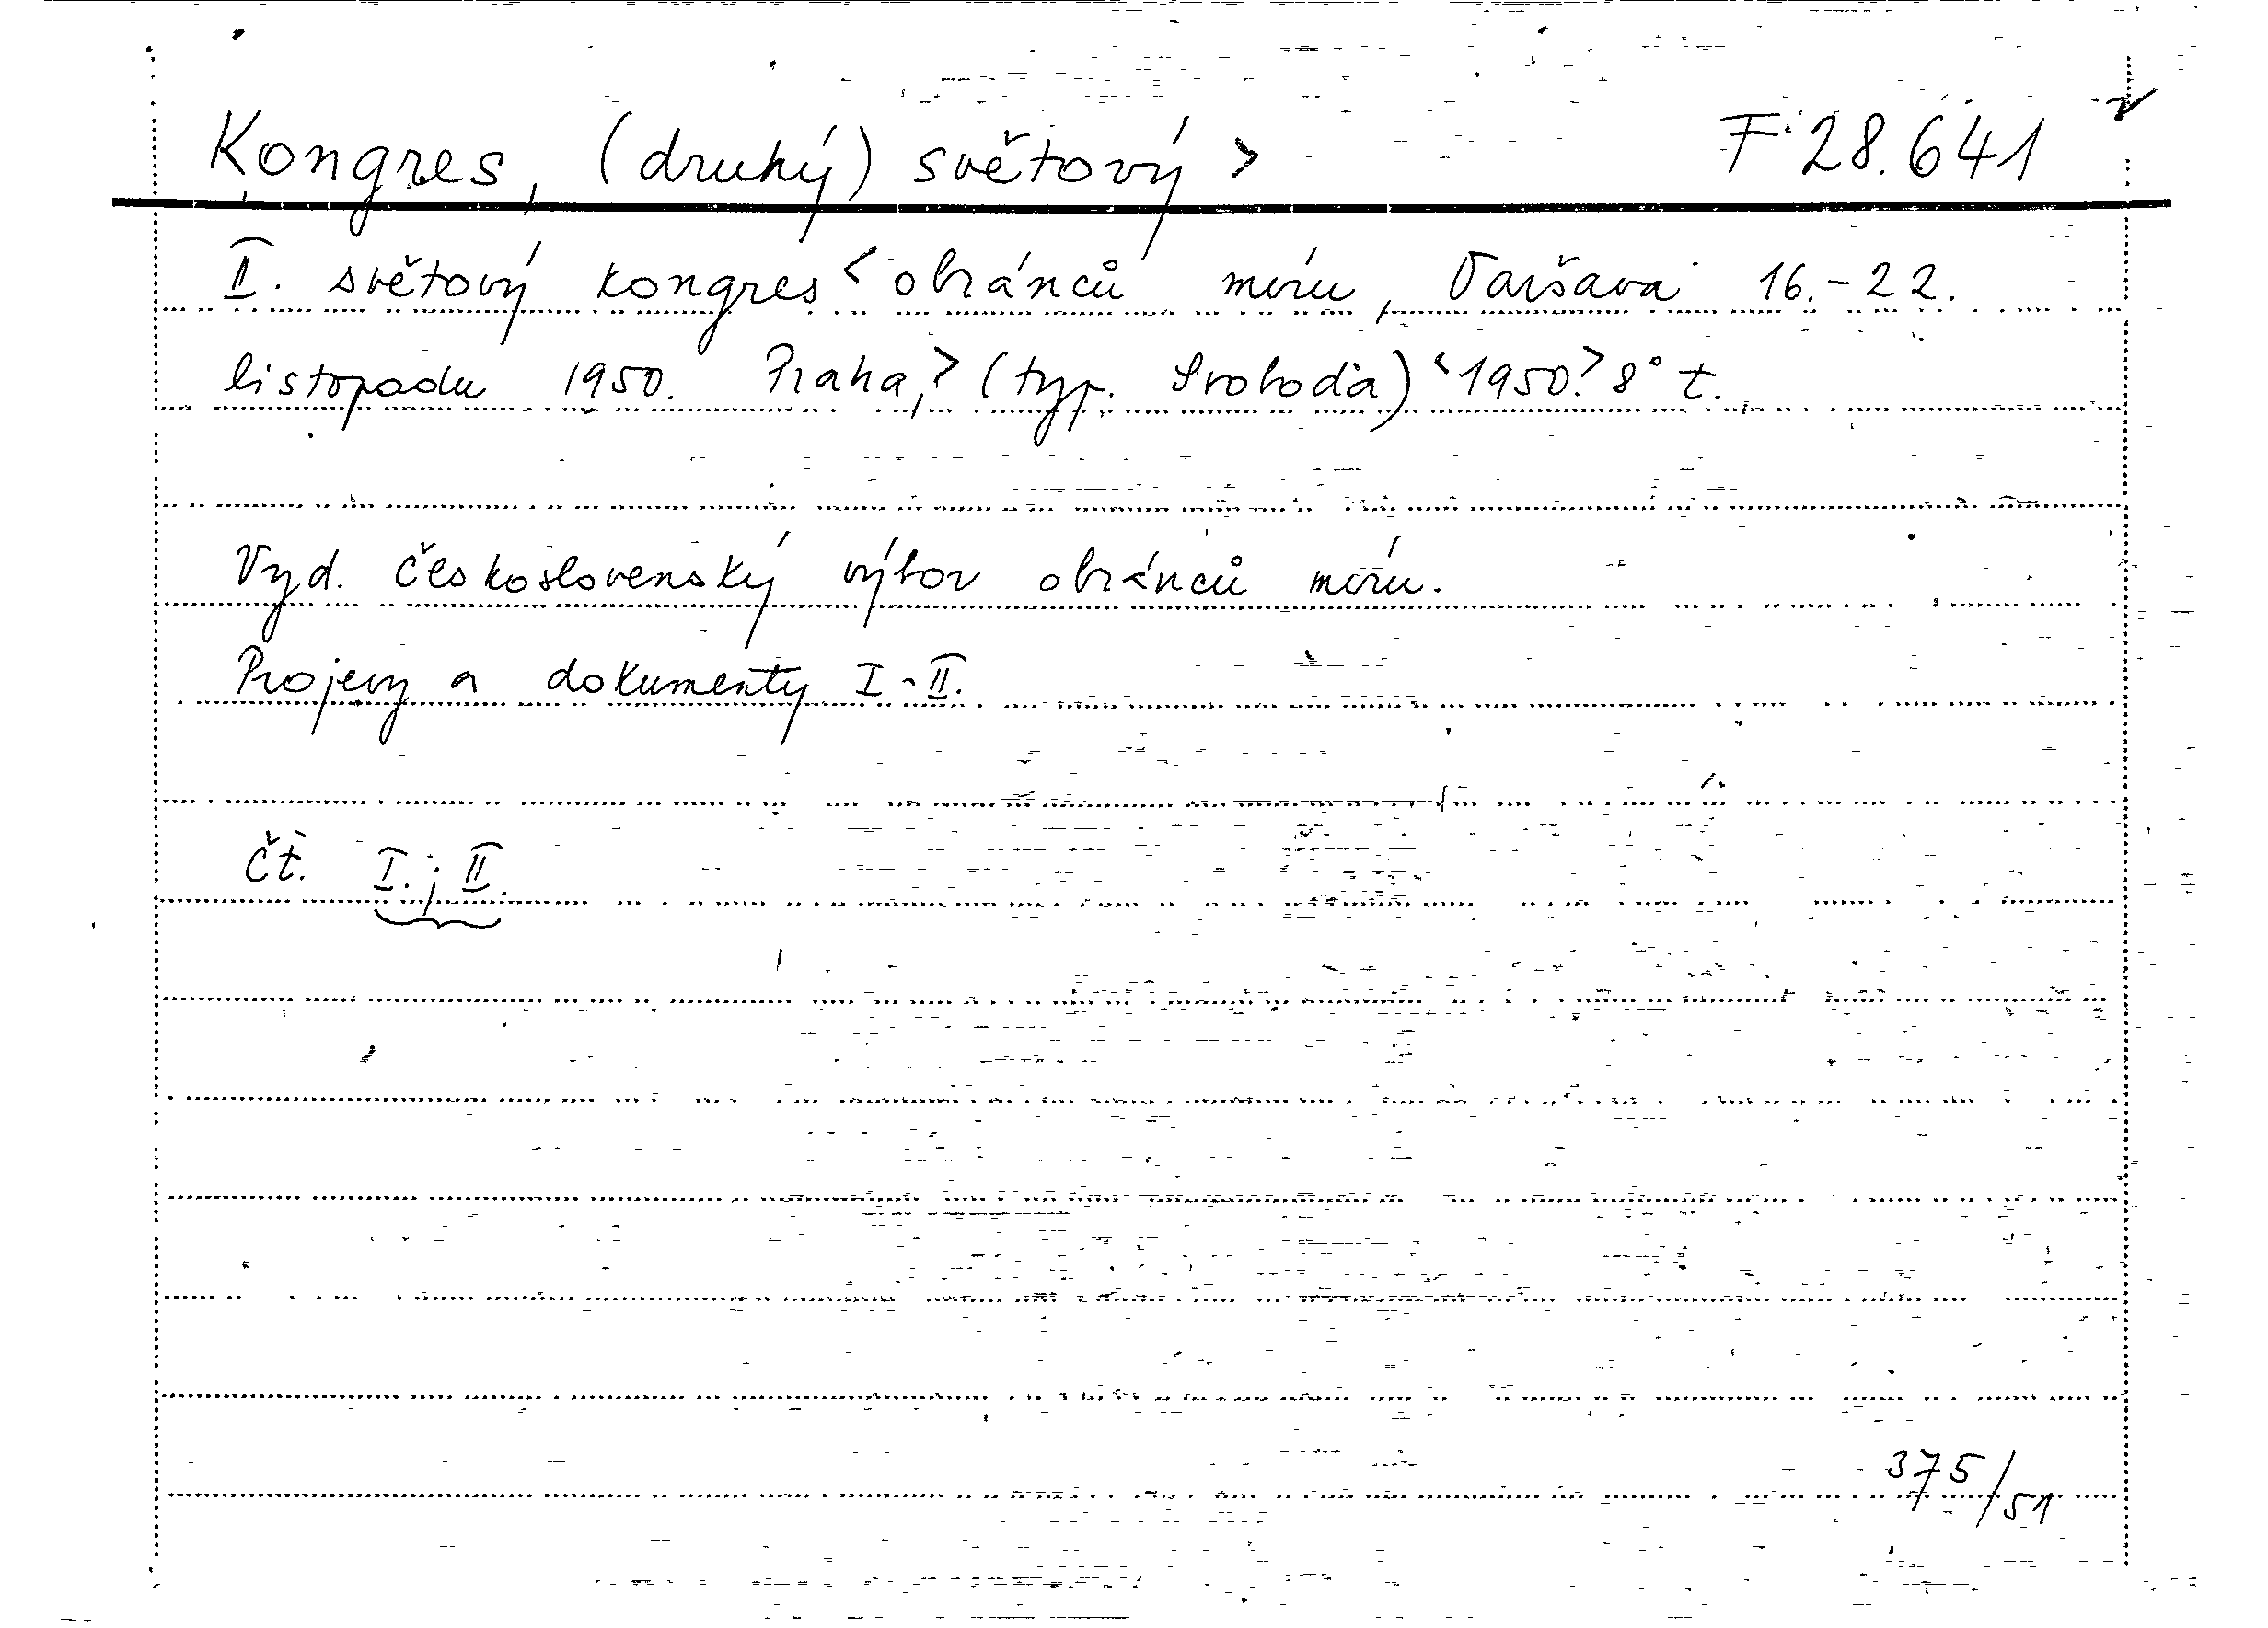 Kongres, (druhý) světový > F 28.641
II. světový kongres < obránců míru, Varšava 16.-22.
listopadu 1950. Praha,> (typ. Svoboda) <1950.> 8° t.
Vyd. Československý výbor obránců míru.
Projevy a dokumenty I-II.
Čt. I.; II.
375/51